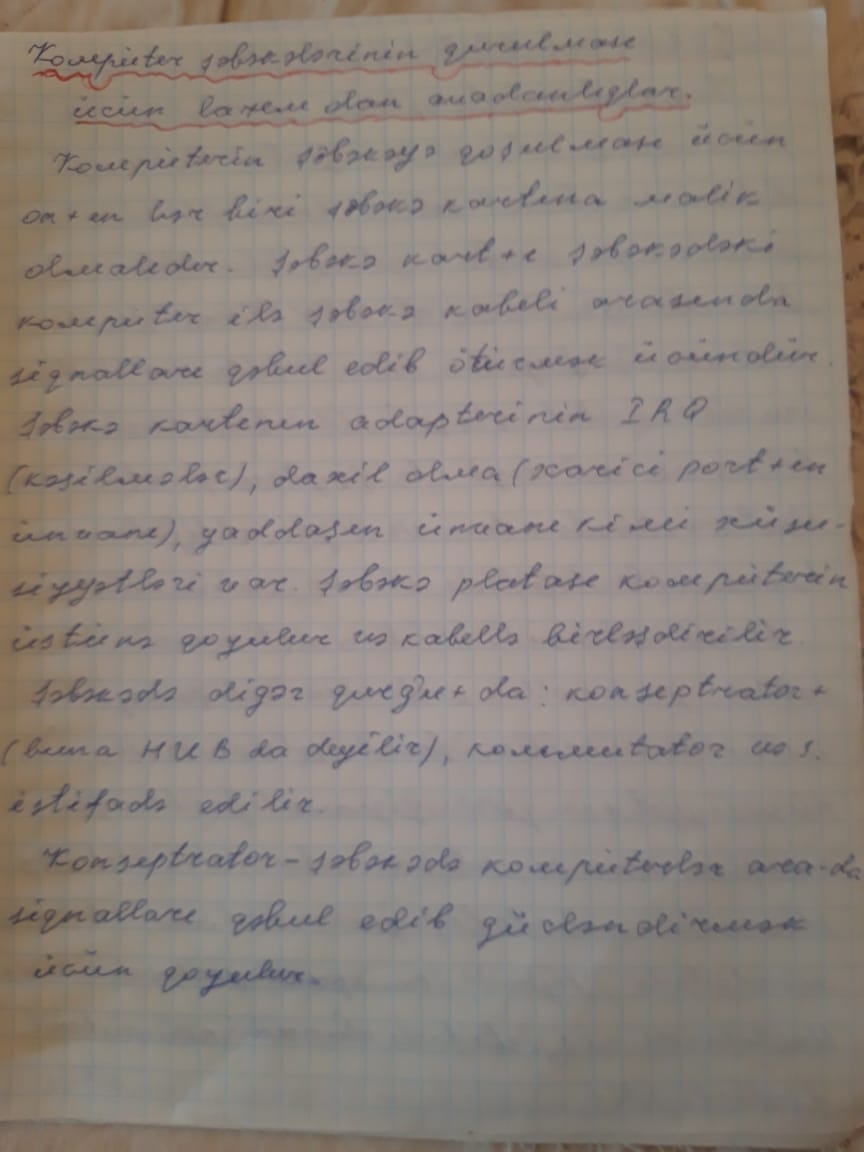 Kompüter şəbəkələrinin qurulması
üçün lazım olan avadanlıqlar.
Kompüterin şəbəkəyə qoşulması üçün
on+ın hər biri şəbəkə kartına malik
olmalıdır. Şəbəkə kart+ı şəbəkədəki
kompüter ilə şəbəkə kabeli arasında
siqnalları qəbul edib ötürmək üçündür.
Şəbəkə kartının adapterinin IRQ
(kəsilmələr), daxil olma (xarici port+ın
ünvanı), yaddaşın ünvanı kimi xüsu-
siyyətləri var. Şəbəkə platası kompüterin
üstünə qoyulur və kabellə birləşdirilir.
Şəbəkədə digər qurğu+ da: konseptrator+
(buna HUB da deyilir), kommutator və s.
istifadə edilir.
Konseptrator-şəbəkədə kompüterlər ara-da
siqnalları qəbul edib gücləndirmək
üçün qoyulur.